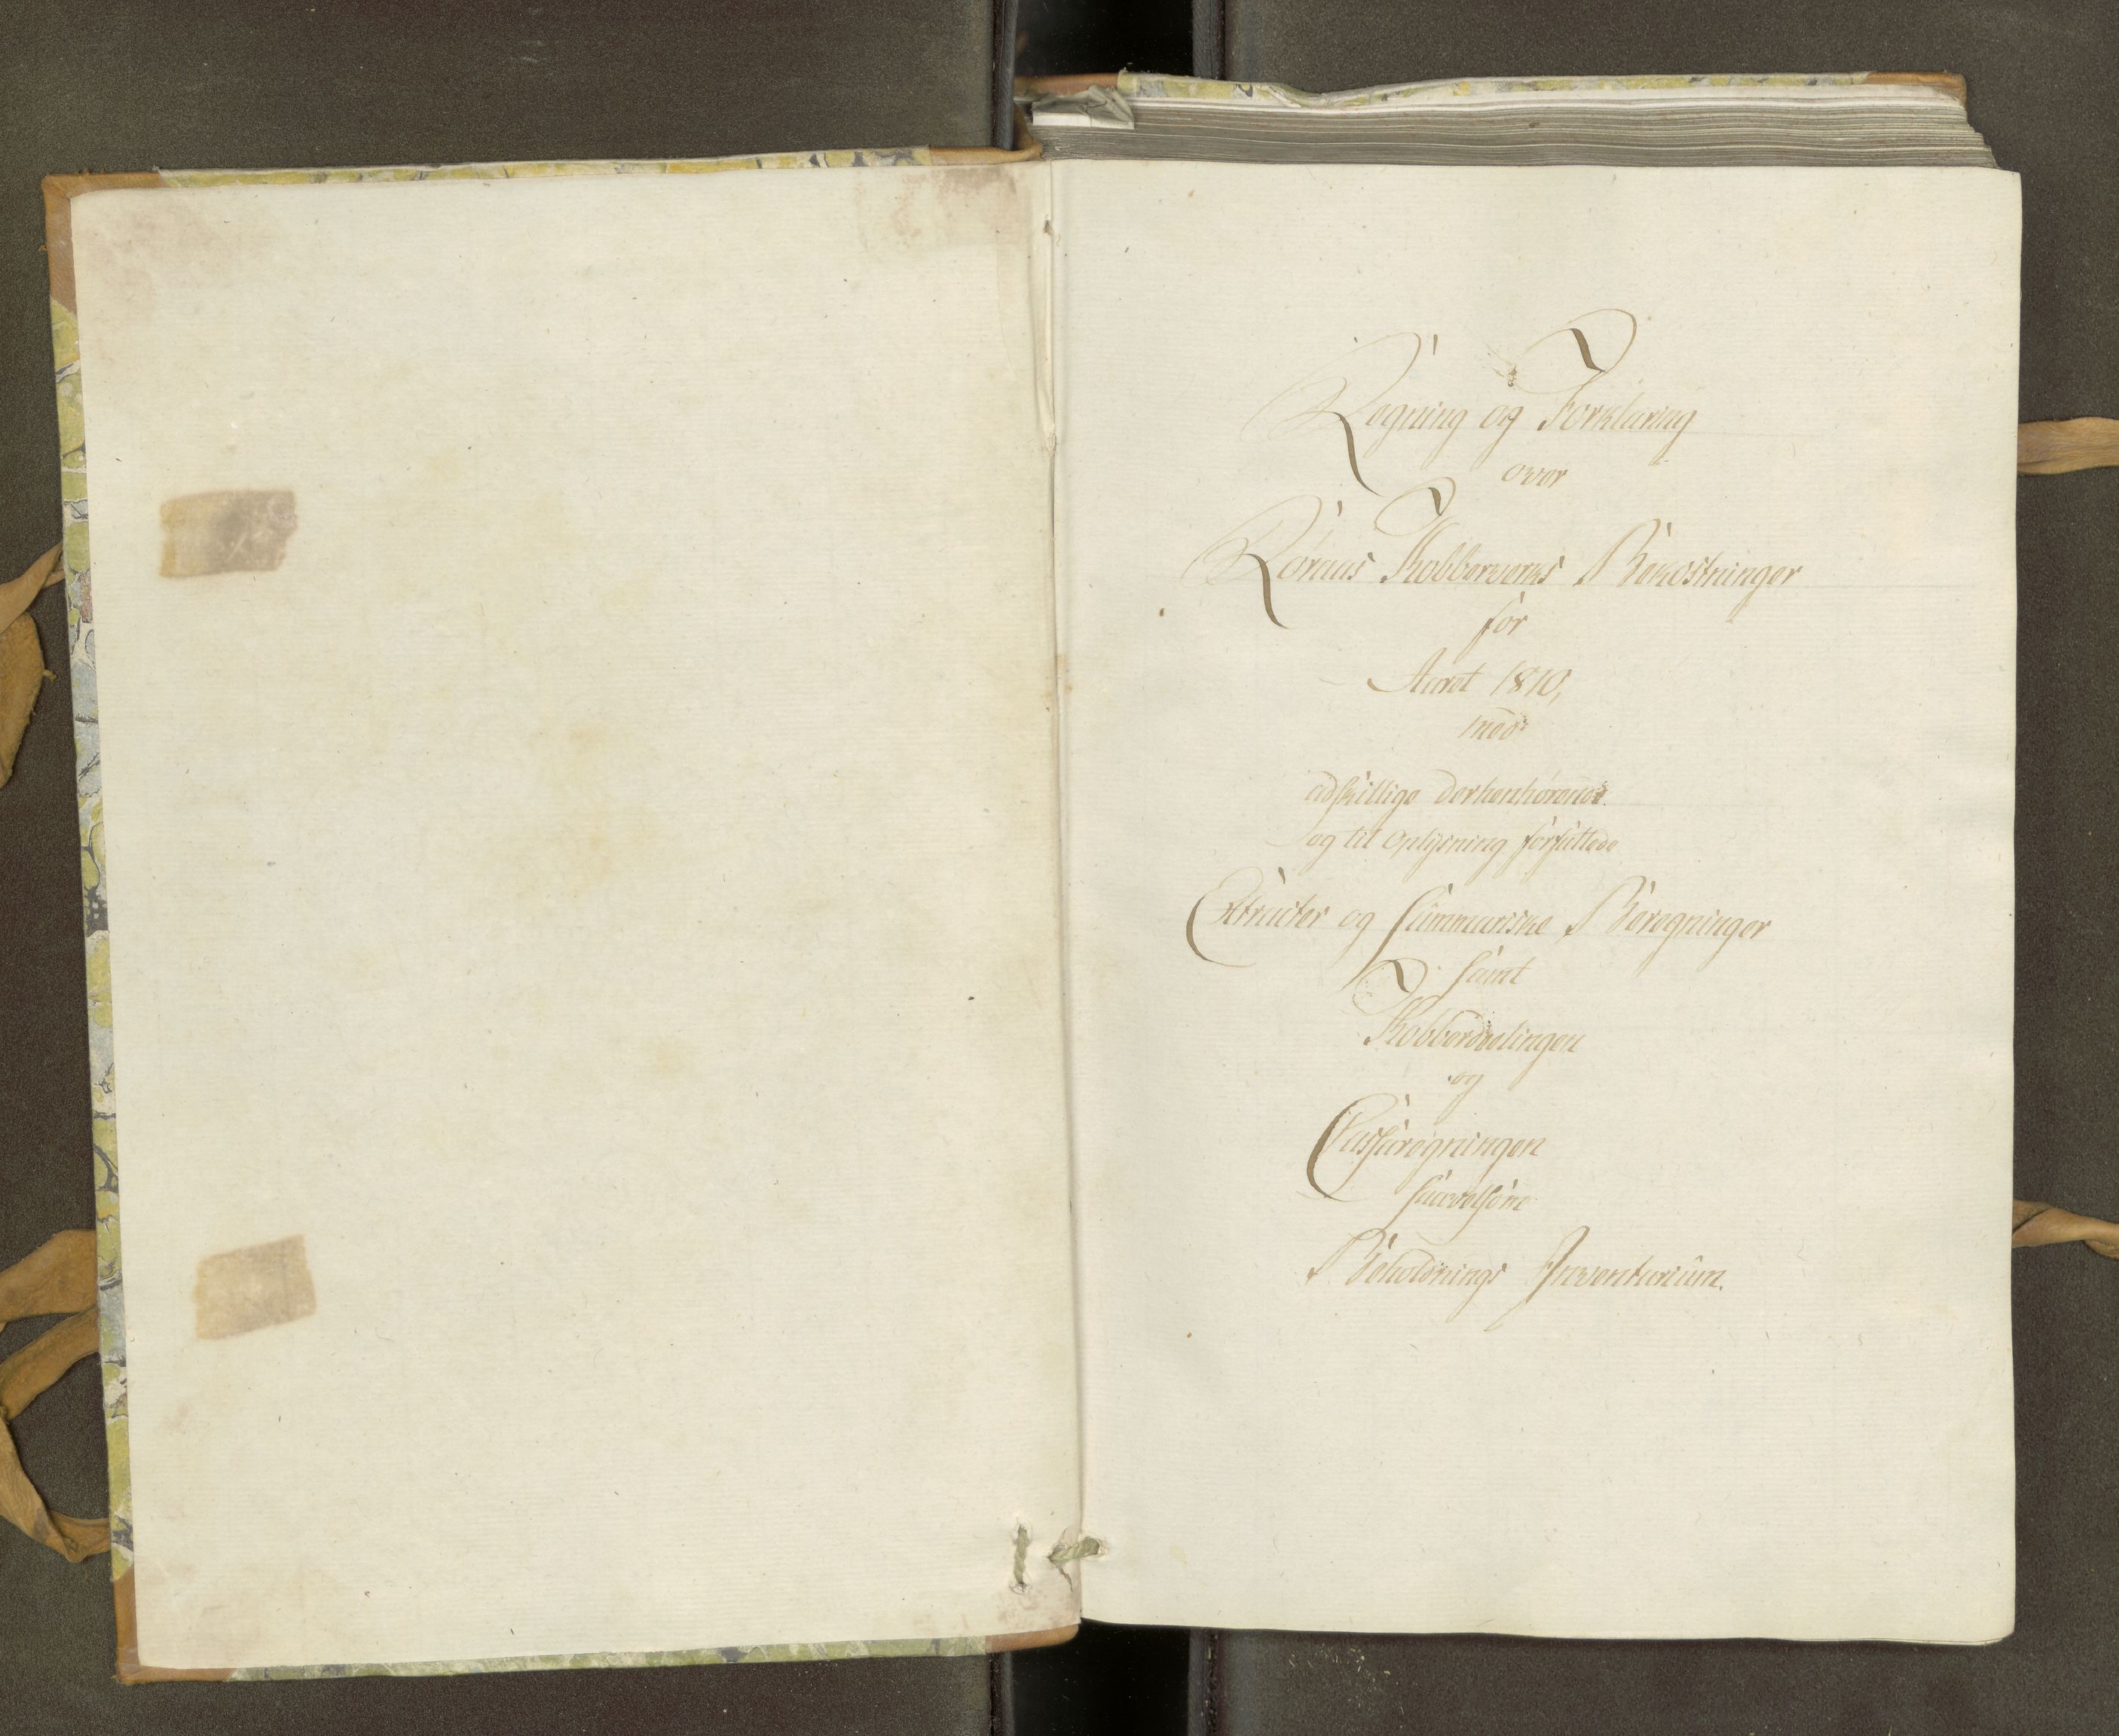 Regning og Forklaring
over
Röraas Kobberverks Bekostninger
for
Aaret 1810,
med
adskillige derhenhörende
og til Oplysning forfattede
Extracter og summariske Beregninger
samt
Kobberdeelingen
og
Cassaregningen
saavelsom
Beholdnings Inventarium.